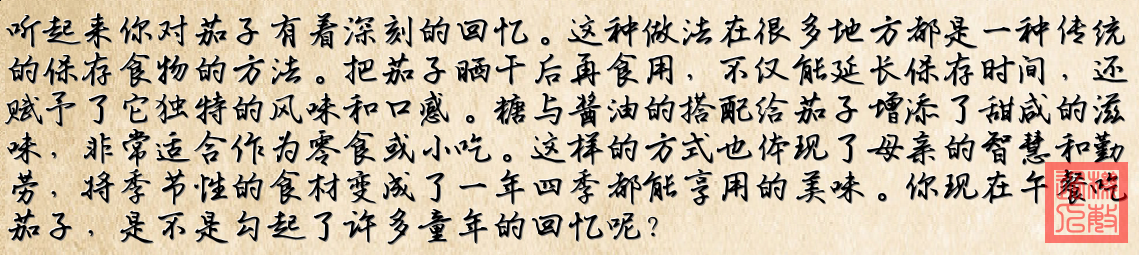 听起来你对茄子有着深刻的回忆。这种做法在很多地方都是一种传统
的保存食物的方法。把茄子晒干后再食用，不仅能延长保存时间，还
赋予了它独特的风味和口感。糖与酱油的搭配给茄子增添了甜咸的滋
味，非常适合作为零食或小吃。这样的方式也体现了母亲的智慧和勤
劳，将季节性的食材变成了一年四季都能享用的美味。你现在午餐吃
茄子，是不是勾起了许多童年的回忆呢？